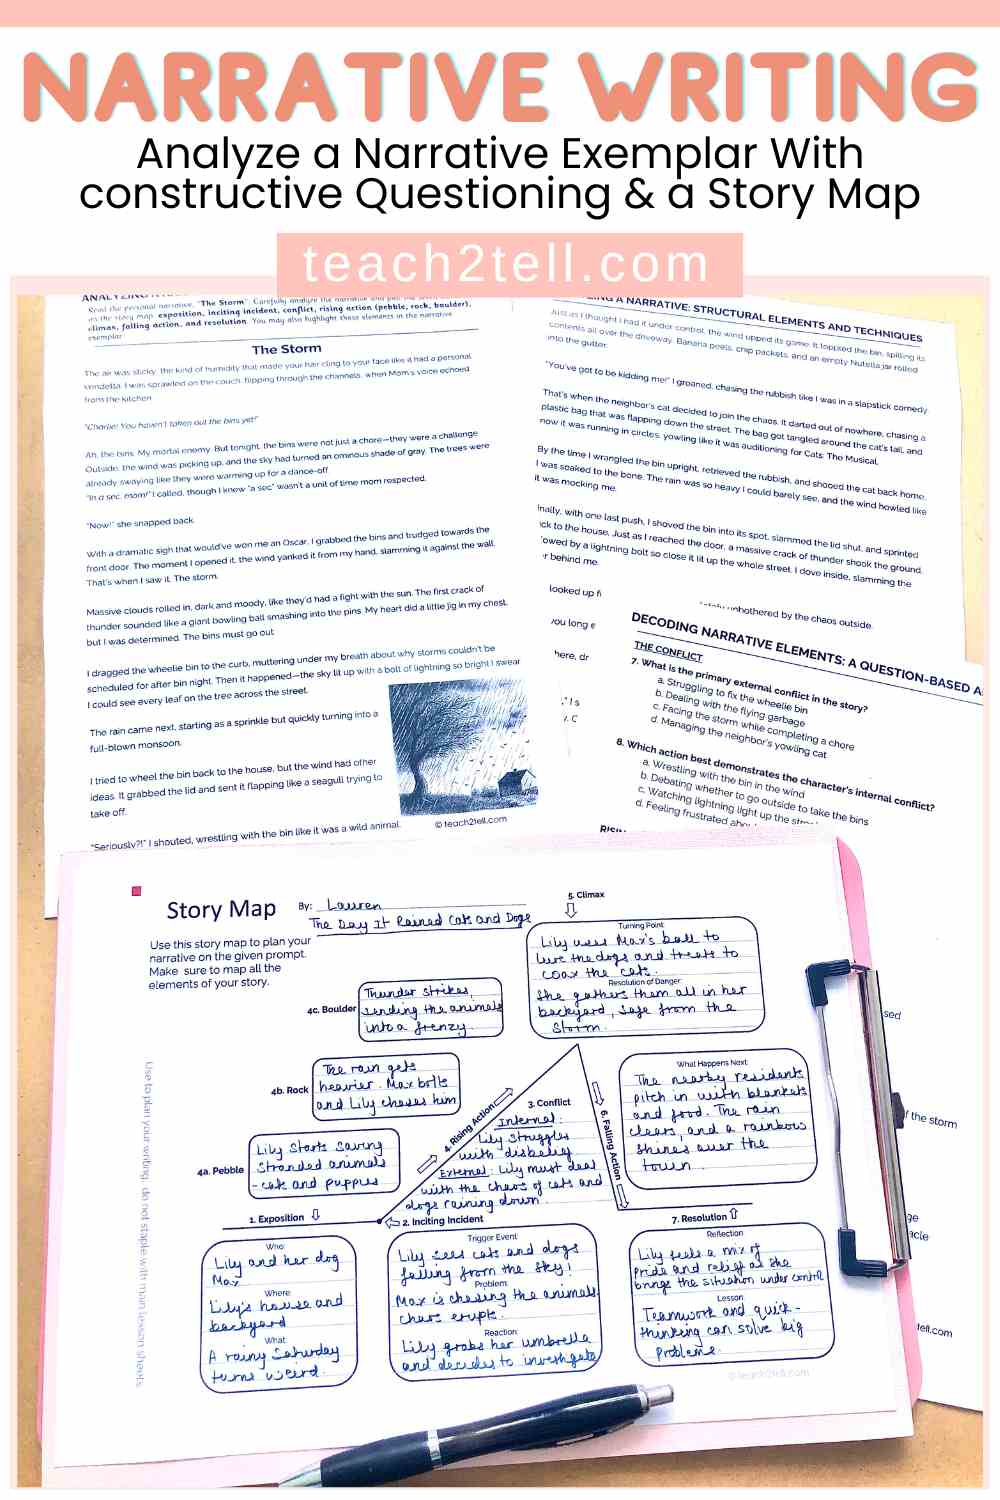 NARRATIVE WRITING
Analyze a Narrative Exemplar With
constructive Questioning & a Story Map
teach2tell.com
Read the personal narrative, "The Storm". Carefully analyze the narrative and
as the story map: exposition, inciting incident, conflict, rising action (pebble, rock, boulder),
climax, falling action, and resolution. You may also highlight these elements in the narrative
exemplar.
The Storm
The air was sticky, the kind of humidity that made your hair cling to your face like it had a personal
vendetta. I was sprawled on the couch, flipping through the channels, when Mom's voice echoed
from the kitchen.
"Charlie! You haven't taken out the bins yet!"
Ah, the bins. My mortal enemy. But tonight, the bins were not just a chore—they were a challenge.
Outside, the wind was picking up, and the sky had turned an ominous shade of gray. The trees were
already swaying like they were warming up for a dance-off.
"In a sec, mom!" I called, though I knew "a sec" wasn't a unit of time mom respected.
"Now!" she snapped back.
With a dramatic sigh that would've won me an Oscar, I grabbed the bins and trudged towards the
front door. The moment I opened it, the wind yanked it from my hand, slamming it against the wall.
That's when I saw it. The storm.
Massive clouds rolled in, dark and moody, like they'd had a fight with the sun. The first crack of
thunder sounded like a giant bowling ball smashing into the pins. My heart did a little jig in my chest,
but I was determined. The bins must go out.
I dragged the wheelie bin to the curb, muttering under my breath about why storms couldn't be
scheduled for after bin night. Then it happened—the sky lit up with a bolt of lightning so bright I swear
I could see every leaf on the tree across the street.
The rain came next, starting as a sprinkle but quickly turning into a
full-blown monsoon.
I tried to wheel the bin back to the house, but the wind had other
ideas. It grabbed the lid and sent it flapping like a seagull trying to
take off.
"Seriously?!" I shouted, wrestling with the bin like it was a wild animal.
© teach2tell.com
A NARRATIVE: STRUCTURAL ELEMENTS AND TECHNIQUES
Just as I thought I had it under control, the wind upped its game. It toppled the bin, spilling its
contents all over the driveway. Banana peels, chip packets, and an empty Nutella jar rolled
into the gutter.
"You've got to be kidding me!" I groaned, chasing the rubbish like I was in a slapstick comedy.
That's when the neighbor's cat decided to join the chaos. It darted out of nowhere, chasing a
plastic bag that was flapping down the street. The bag got tangled around the cat's tail, and
now it was running in circles, yowling like it was auditioning for Cats: The Musical.
By the time I wrangled the bin upright, retrieved the rubbish, and shooed the cat back home,
I was soaked to the bone. The rain was so heavy I could barely see, and the wind howled like
it was mocking me.
with one last push, I shoved the bin into its spot, slammed the lid shut, and sprinted
to the house. Just as I reached the door, a massive crack of thunder shook the ground,
by a lightning bolt so close it lit up the whole street. I dove inside, slamming the
behind me.
looked up
unbothered by the chaos outside.
you long
DECODING NARRATIVE ELEMENTS: A QUESTION-BASED
THE CONFLICT
7. What is the primary external conflict in the story?
a. Struggling to fix the wheelie bin
b. Dealing with the flying garbage
c. Facing the storm while completing a chore
d. Managing the neighbor's yowling cat
8. Which action best demonstrates the character's internal conflict?
a. Wrestling with the bin in the wind
b. Debating whether to go outside to take the bins
c. Watching lightning light up the
d. Feeling frustrated
of the storm
Story Map
By: Lauren
The Day It Rained Cats and Dogs
Use this story map to plan your
narrative on the given prompt.
Make sure to map all the
elements of your story.
5. Climax
Turning Point
Lily uses Max's ball to
lure the dogs and treats to
coax the cats.
Resolution of Danger
She gathers them all in her
backyard, safe from the
storm.
4c. Boulder
Thunder strikes,
sending the animals
into a frenzy.
4b. Rock
The rain gets
heavier. Max bolts
and Lily chases him
4a. Pebble
Lily starts saving
stranded animals
- cats and puppies
4. Rising Action
3. Conflict
Internal:
Lily struggles
with disbelief
External: Lily must deal
with the chaos of cats and
dogs raining down.
6. Falling Action
What Happens Next
The nearby residents
pitch in with blankets
and food. The rain
clears, and a rainbow
shines over the
town.
1. Exposition
Who
Lily and her dog
Max
Where
Lily's house and
backyard
What
A rainy Saturday
turns weird.
2. Inciting Incident
Trigger Event
Lily sees cats and dogs
falling from the sky!
Problem
Max is chasing the animals.
chaos erupts.
Reaction
Lily grabs her umbrella
and decides to investigate
7. Resolution
Reflection
Lily feels a mix of
pride and relief as she
brings the situation under control
Lesson
Teamwork and quick-
thinking can solve big
problems.
© teach2tell.com
Use to plan your writing, do not staple with main lesson sheets